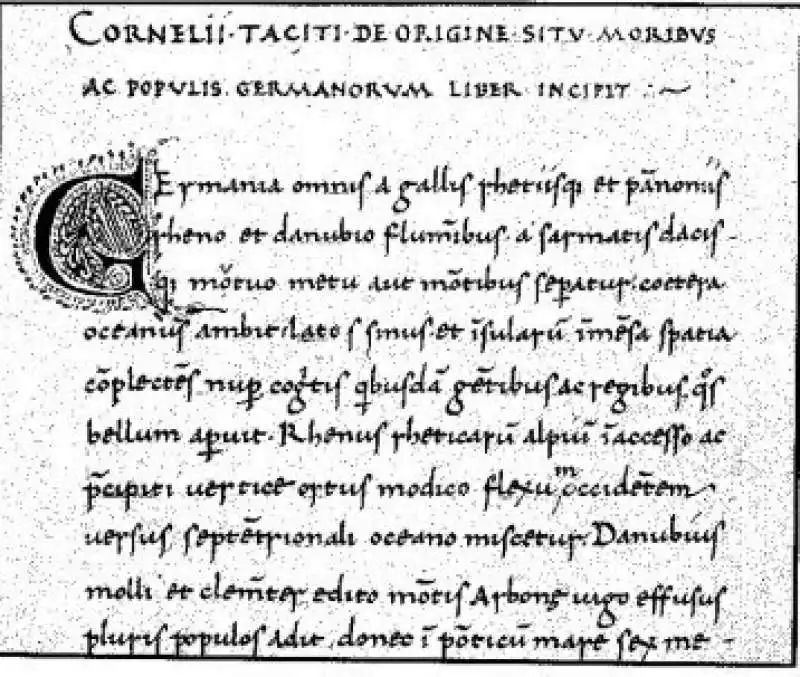 CORNELII·TACITI·DE ORIGINE·SITV·MORIBVS
AC POPVLIS. GERMANORVM LIBER INCIPIT
GErmania omnis a gallis rhetiisq et pānoniis
rheno et danubio flumībus. a sarmatis dacis-
q mōtuo metu aut mōtibus sepatur: coetera
oceanus ambit: latos sinus. et īsularū īmēsa spatia
cōplectēs nup cogtis qbusdā gētibus ac regibus, qs
bellum apuit. Rhenus rheticarū alpiū īaccesso ac
pcipiti uertice ortus modico flexu occidētem
uersus septētrionali oceano miscetur. Danubius
molli et clemter edito mōtis Arbonę iugo effusus
pluris populos adit, donec ī pōticū mare sex me-